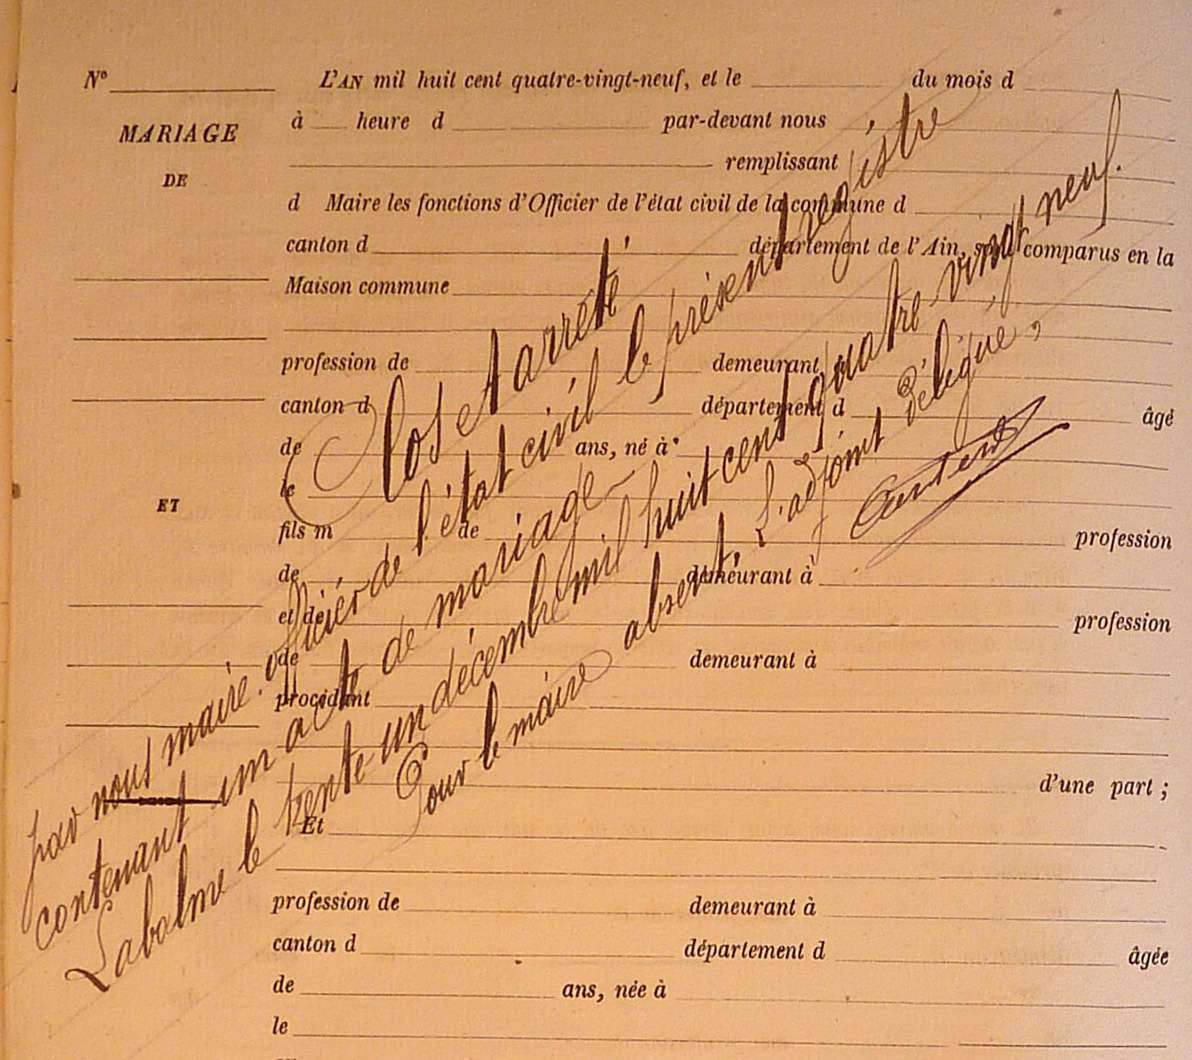 N° L'AN mil huit cent quatre-vingt-neuf, et le du mois d
MARIAGE
DE
ET
à heure d par-devant nous
remplissant
d Maire les fonctions d'Officier de l'état civil de la commune d
canton d département de l'Ain, sont comparus en la
Maison commune
profession de demeurant
canton d département d âgé
de ans, né à
le
fils m de profession
de demeurant à
et de profession
de demeurant à
procédant
d'une part ;
Et
profession de demeurant à
canton d département d âgée
de ans, née à
le
Clos et arrêté
par nous maire officier de l'état civil le présent registre
contenant un acte de mariage
Labalme le trente-un décembre mil huit cent quatre-vingt neuf.
Pour le maire absent, L'adjoint délégué,